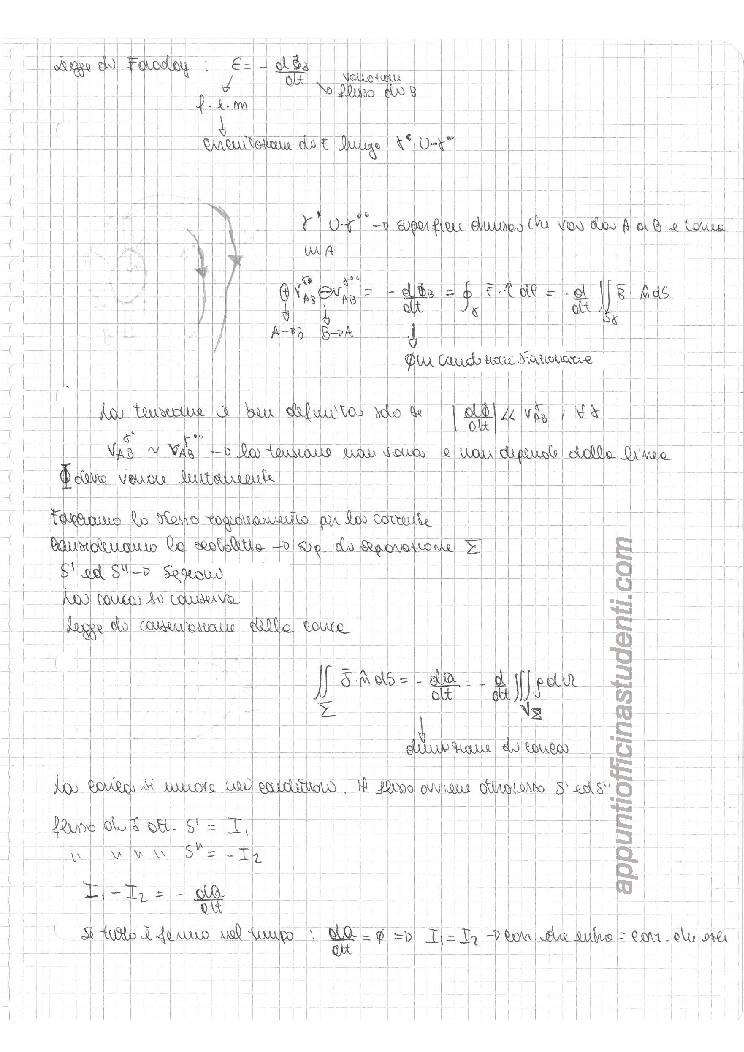 Legge di Faraday : ε = - dΦB/dt
variazione
↓ ↘ flusso di B
f.e.m
↓
circuitazione di E lungo γ' U-γ''
γ' U-γ'' → superficie chiusa che va da A a B e torna
in A
⊕ V_AB^γ' ⊖ V_AB^γ'' = - dΦB/dt = ∮_γ E̅ · t̂ dl = - d/dt ∬_Sγ B̅ n̂ dS
↓ ↓ ↓
A→B B→A
Ø in condizioni stazionarie
La tensione è ben definita solo se |dΦ/dt| << V_AB^γ, ∀γ
V_AB^γ' ~ V_AB^γ'' → la tensione non varia e non dipende dalla linea
Φ deve variare lentamente
Facciamo lo stesso ragionamento per la corrente
Consideriamo la scatoletta → sup. di separazione Σ
S' ed S'' → Sezioni
La carica si conserva
Legge di conservazione della carica
∬_Σ J̅ · n̂ dS = - dQ/dt = - d/dt ∭_VΣ ρ dΩ
↓
diminuzione di carica
La carica si muove nei conduttori. Il flusso avviene attraverso S' ed S''
flusso di J̅ att. S' = I₁
" " " " S'' = -I₂
I₁ - I₂ = - dQ/dt
Se tutto è fermo nel tempo : dQ/dt = Ø => I₁ = I₂ → corr. che entra = corr. che esce
appuntiofficinastudenti.com